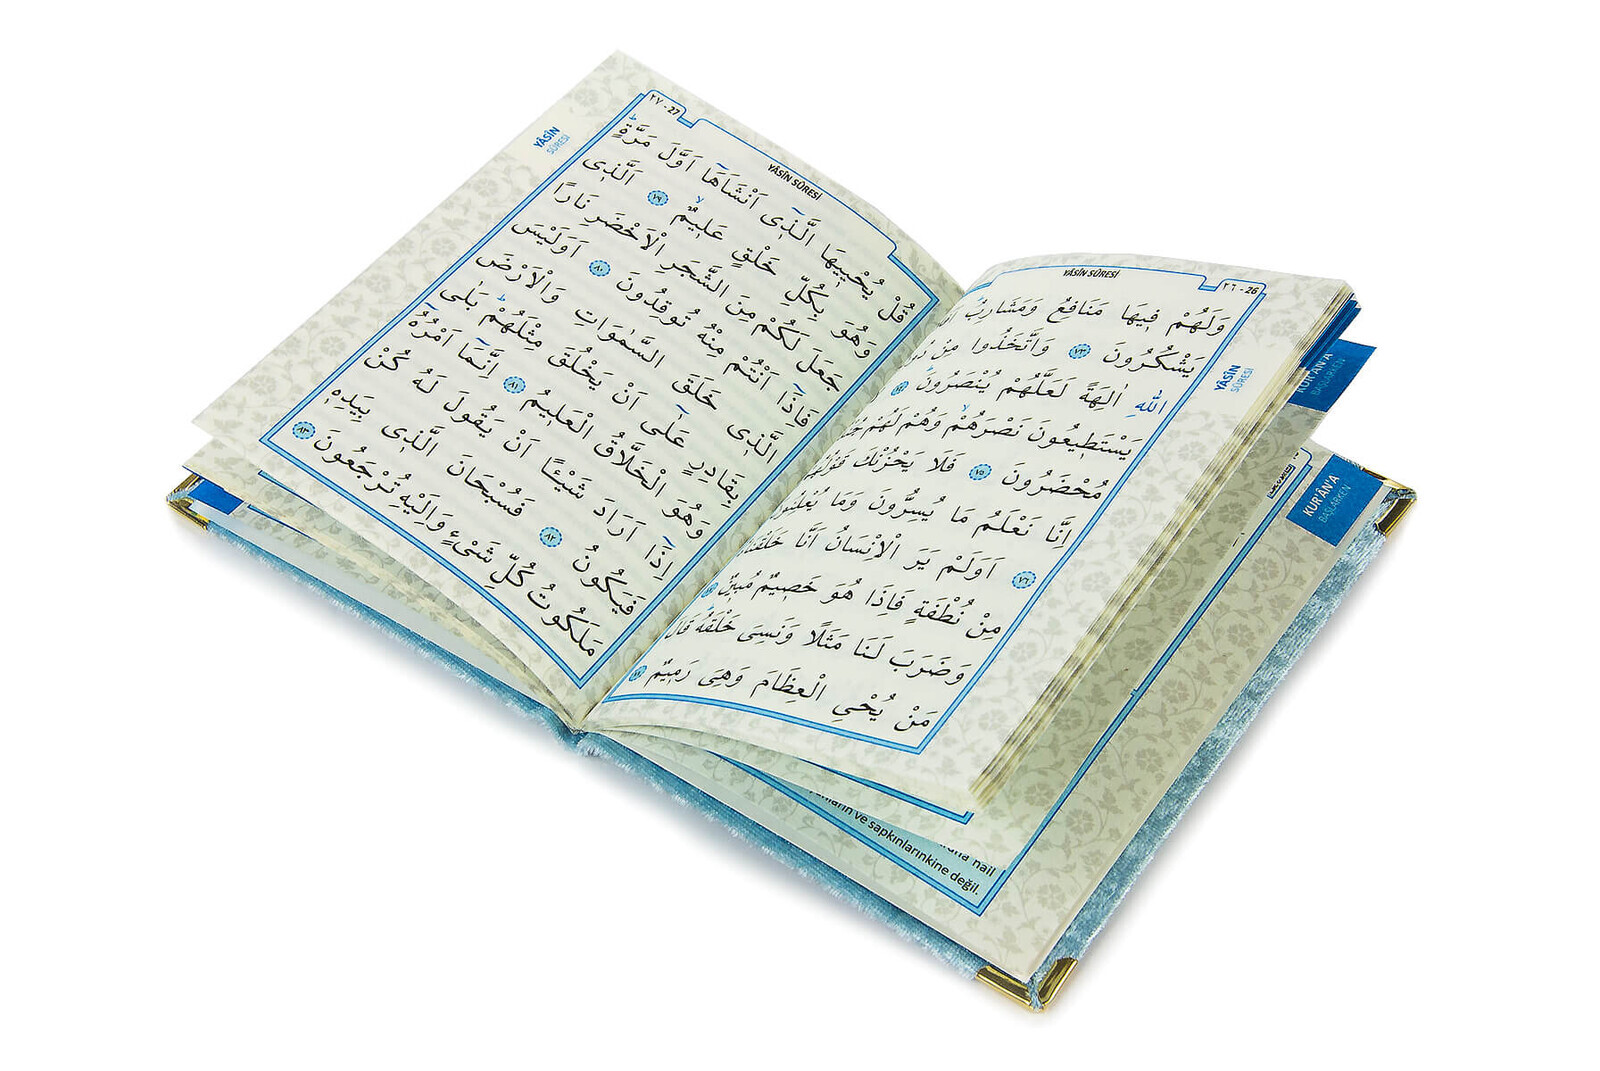 YÂSÎN SÛRESİ
٢٦ - 26
YÂSÎN
SÛRESİ
وَلَهُمْ فٖيهَا مَنَافِعُ وَمَشَارِبُ
يَشْكُرُونَ ٧٣ وَاتَّخَذُوا مِنْ
اللّٰهِ اٰلِهَةً لَعَلَّهُمْ يُنْصَرُونَ ٧٤
يَسْتَطٖيعُونَ نَصْرَهُمْ وَهُمْ لَهُمْ
مُحْضَرُونَ ٧٥ فَلَا يَحْزُنْكَ قَوْلُهُمْ
اِنَّا نَعْلَمُ مَا يُسِرُّونَ وَمَا يُعْلِنُونَ
٧٦ اَوَلَمْ يَرَ الْاِنْسَانُ اَنَّا خَلَقْنَاهُ
مِنْ نُطْفَةٍ فَاِذَا هُوَ خَصٖيمٌ مُبٖينٌ ٧٧
وَضَرَبَ لَنَا مَثَلًا وَنَسِىَ خَلْقَهُ قَالَ
مَنْ يُحْيِ الْعِظَامَ وَهِىَ رَمٖيمٌ ٧٨
٢٧ - 27
YÂSÎN SÛRESİ
YÂSÎN
SÛRESİ
قُلْ يُحْيٖيهَا الَّذٖى اَنْشَاَهَٓا اَوَّلَ مَرَّةٍ
وَهُوَ بِكُلِّ خَلْقٍ عَلٖيمٌ ٧٩ اَلَّذٖى
جَعَلَ لَكُمْ مِنَ الشَّجَرِ الْاَخْضَرِ نَارًا
فَاِذَٓا اَنْتُمْ مِنْهُ تُوقِدُونَ ٨٠ اَوَلَيْسَ
الَّذٖى خَلَقَ السَّمٰوَاتِ وَالْاَرْضَ
بِقَادِرٍ عَلٰٓى اَنْ يَخْلُقَ مِثْلَهُمْ بَلٰى
وَهُوَ الْخَلَّاقُ الْعَلٖيمُ ٨١ اِنَّمَٓا اَمْرُهُٓ
اِذَٓا اَرَادَ شَيْـًٔا اَنْ يَقُولَ لَهُ كُنْ
فَيَكُونُ ٨٢ فَسُبْحَانَ الَّذٖى بِيَدِهٖ
مَلَكُوتُ كُلِّ شَىْءٍ وَاِلَيْهِ تُرْجَعُونَ ٨٣
KUR'ÂN'A
BAŞLARKEN
KUR'ÂN'A
BAŞLARKEN
nail
ve sapkınlarınkine değil.